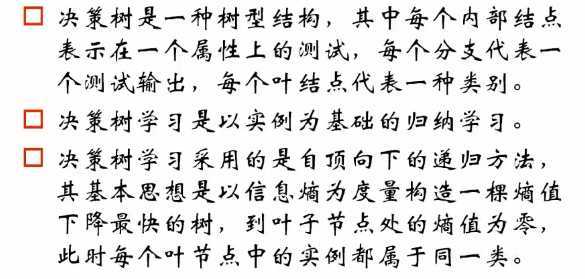 决策树是一种树型结构，其中每个内部结点
表示在一个属性上的测试，每个分支代表一
个测试输出，每个叶结点代表一种类别。
决策树学习是以实例为基础的归纳学习。
决策树学习采用的是自顶向下的递归方法，
其基本思想是以信息熵为度量构造一棵熵值
下降最快的树，到叶子节点处的熵值为零，
此时每个叶节点中的实例都属于同一类。